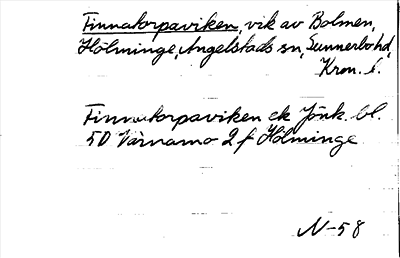 Finnatorpaviken, vik av Bolmen,
Hölminge, Angelstads sn, Sunnerbo hd,
Kron. l.
Finnatorpaviken ek Jönk. bl.
50 Värnamo 2 f Hölminge
N-58